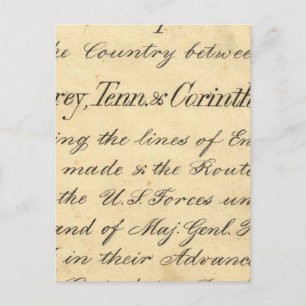 the Country betwee
rey, Tenn. & Corinth
ing the lines of En
made & the Route
the U.S. Forces un
and of Maj. Genl.
in their Advance